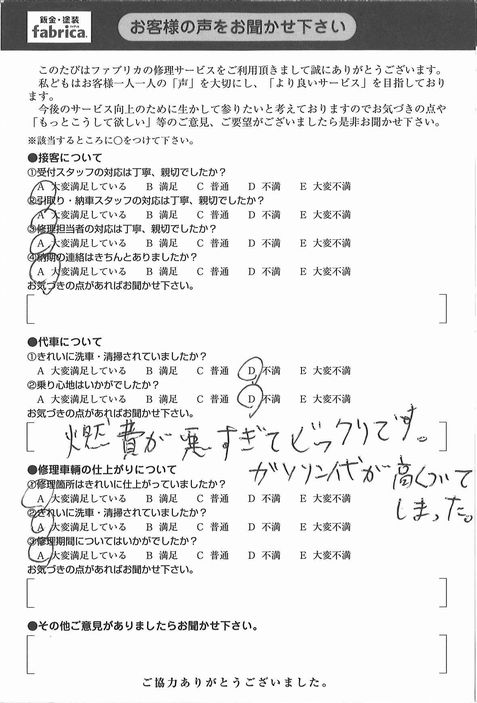 鈑金・塗装
fabrica.
お客様の声をお聞かせ下さい
このたびはファブリカの修理サービスをご利用頂きまして誠にありがとうございます。
私どもはお客様一人一人の「声」を大切にし、「より良いサービス」を目指しており
ます。
今後のサービス向上のために生かして参りたいと考えておりますのでお気づきの点や
「もっとこうして欲しい」等のご意見、ご要望がございましたら是非お聞かせ下さい。
※該当するところに○をつけて下さい。
●接客について
①受付スタッフの対応は丁寧、親切でしたか？
A 大変満足している B 満足 C 普通 D 不満 E 大変不満
②引取り・納車スタッフの対応は丁寧、親切でしたか？
A 大変満足している B 満足 C 普通 D 不満 E 大変不満
③修理担当者の対応は丁寧、親切でしたか？
A 大変満足している B 満足 C 普通 D 不満 E 大変不満
④納期の連絡はきちんとありましたか？
A 大変満足している B 満足 C 普通 D 不満 E 大変不満
お気づきの点があればお聞かせ下さい。
●代車について
①きれいに洗車・清掃されていましたか？
A 大変満足している B 満足 C 普通 D 不満 E 大変不満
②乗り心地はいかがでしたか？
A 大変満足している B 満足 C 普通 D 不満 E 大変不満
お気づきの点があればお聞かせ下さい。
燃費が悪すぎてビックリです。
ガソリン代が高くついて
しまった。
●修理車輌の仕上がりについて
①修理箇所はきれいに仕上がっていましたか？
A 大変満足している B 満足 C 普通 D 不満 E 大変不満
②きれいに洗車・清掃されていましたか？
A 大変満足している B 満足 C 普通 D 不満 E 大変不満
③修理期間についてはいかがでしたか？
A 大変満足している B 満足 C 普通 D 不満 E 大変不満
お気づきの点があればお聞かせ下さい。
●その他ご意見がありましたらお聞かせ下さい。
ご協力ありがとうございました。